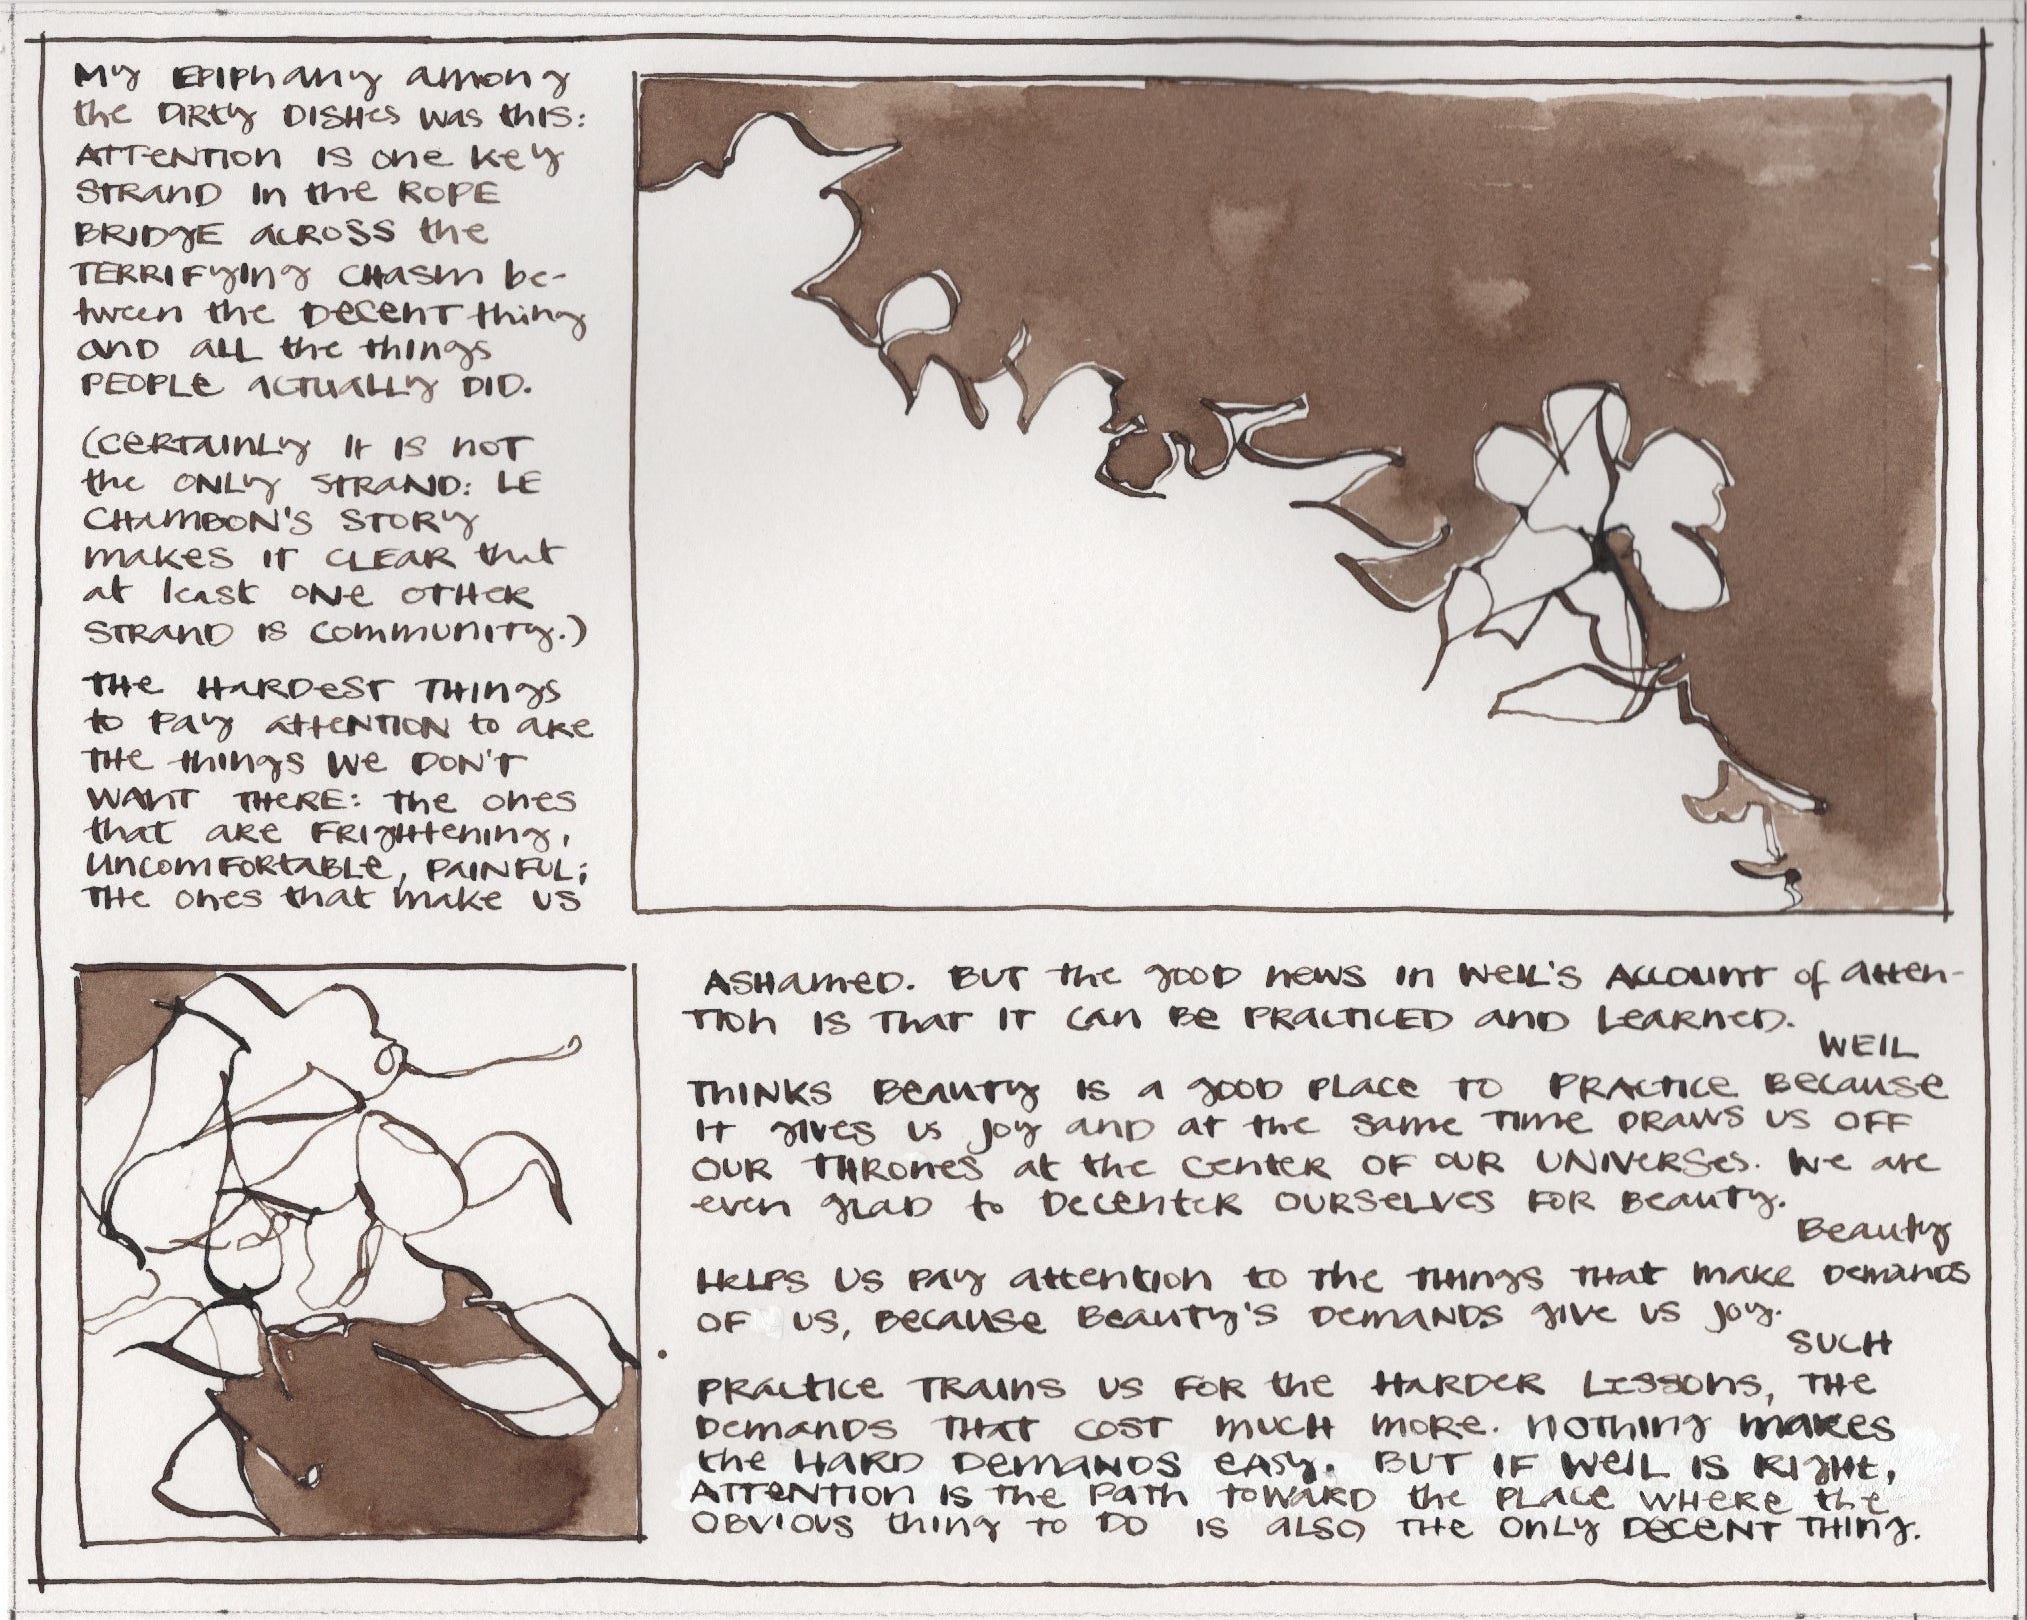 My EPIPhany among
the DIRty DISHes was this:
ATTeNTION IS one key
STRAND IN the ROPE
BRIDgE aCROSS the
TERRIFyINg CHasm be-
tween the DeCeNT thing
AND aLL the things
PEOPLe aCTUaLLy DID.
(CeRTaINLy It IS noT
the ONLy STRaND: LE
CHaMBON'S STORy
makes IT CLEAR that
at least ONe OTHeR
STRAND IS COmmUNITy.)
THe HaRDeST THIngs
to Pay atteNTION to aRe
THe things We DON'T
WANT THeRE: The ones
that aRe FRIgHtening,
UnComFORtaBLe, PAINFUL;
THe ones that make US
ASHameD. BUT the gOOD news IN WeIL'S ACCOUNT of atten-
TIOn IS THaT IT Can Be PRaCTICED anD LeaRneD.
WEIL
THINKS BeaUTy IS a gOOD PLaCe TO PRACTICE BeCaUSe
IT gIVeS us joy and at the Same TIme DRaWS US OFF
OUR THRones at the CenteR OF OUR UNIVeRSeS. We are
even gLaD to DeCenteR OURSeLVeS FOR BeaUTy.
Beauty
HeLPS US Pay attention to the THINgS THat make Demands
OF US, BeCaUSe BeaUTy'S DemANDS gIVe US joy.
SUCH
PRaCTICe TRaINS US FOR the HaRDeR LeSSONS, THe
DemanDS THaT COST mUCH mORe. NOTHINg makes
the HARD DemANDS eASy. BUT IF WeIL IS RIgHt,
ATTeNTION IS THe PaTh TOWaRD the PLaCe WHeRe the
OBVIOUS thing TO DO IS aLSO THe ONLy DeCeNT THINg.